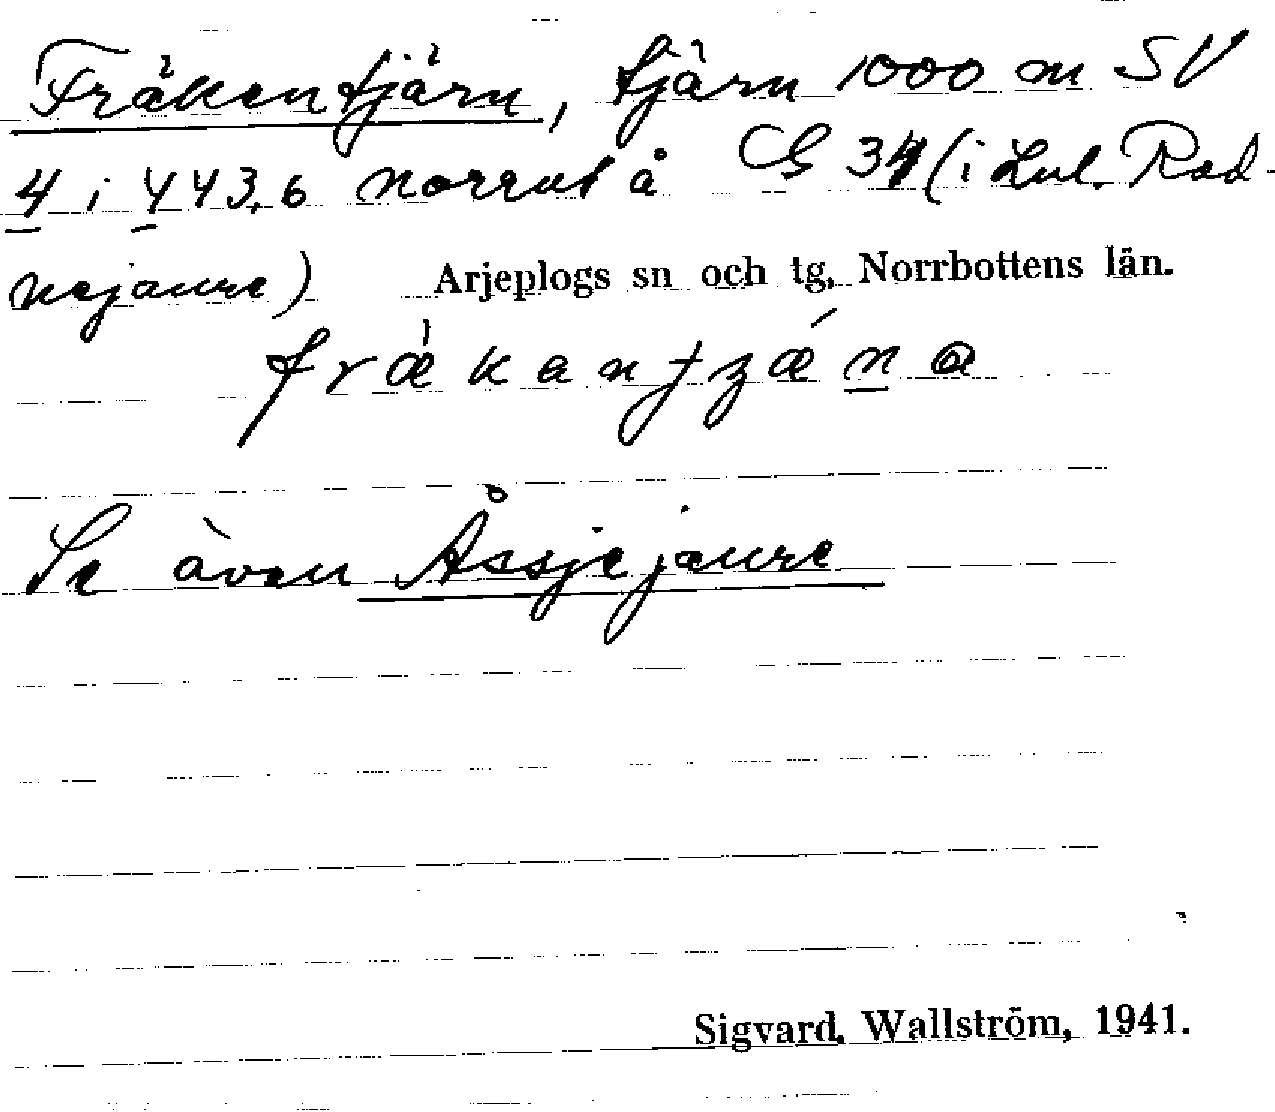 Fräkentjärn, tjärn 1000 m SV
4 i 443,6 norrut å GS 34 (i Lul. Rad-
nejaure) Arjeplogs sn och tg, Norrbottens län.
frǽkantzǽna
Se även Åssjejaure
Sigvard Wallström, 1941.